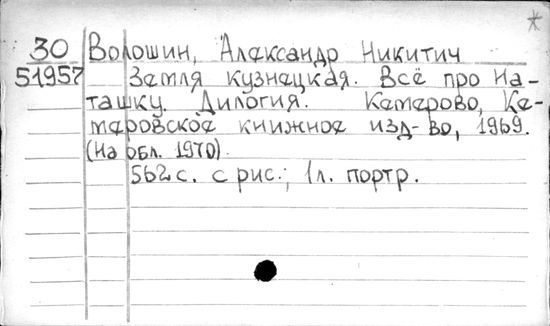 30 Волошин, Александр Никитич
51957 Земля кузнецкая. Всё про На-
ташку. Дилогия. Кемерово, Ке-
меровское книжное изд-во, 1969.
(На обл. 1970).
562 с. с рис.; 1 л. портр.